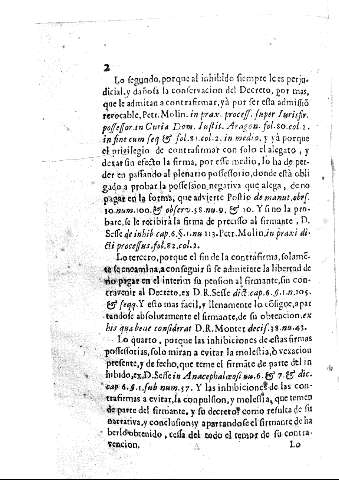 2
Lo segundo, porque al inhibido siempre le es perju-
dicial, y dañosa la conservacion del Decreto, por mas,
que le admitan a contrafirmar, yà por ser esta admissiō
revocable, Petr. Molin. in prax. process. super Iurisfir.
possessor. in Curia Dom. Iustit. Aragon. fol. 80. col. 2.
in fine cum seq & fol. 81. col. 2. in medio, y yà porque
el privilegio de contrafirmar con solo el alegato, y
dexar sin efecto la firma, por esse medio, lo ha de per-
der en passando al plenario possessorio, donde està obli
gado a probar la possession negativa que alega, de no
pagar en la forma, que advierte Postio de manut. obser.
10. num. 100. & observ. 58. nu. 9. & 10. Y si no la pro-
bare, se le recibirà la firma de precio al firmante, D.
Sesse de inhib cap. 6. §. 1. nu 113. Petr. Molin. in praxi di
cti processus, fol. 82. col. 2.
Lo tercero, porque el fin de la contrafirma, solamē-
te se encamina, a conseguir si se admitiere la libertad de
no pagar en el interim su pension al firmante, sin con-
travenir al Decreto, ex D. R. Sesse dict. cap. 6. §. 1. n. 105.
& seqq. Y esto mas facil, y llenamente lo cōsigue, apar
tandose absolutamente el firmante, de su obtencion, ex
his quæ bene considerat D. R. Monter decis. 38. nu. 43.
Lo quarto, porque las inhibiciones de estas firmas
possessorias, solo miran a evitar la molestia, ò vexacion
presente, y de fecho, que teme el firmāte de parte del in
hibido, ex. D. Sesse in Anacephalæosi nu. 6. & 7. & dic.
cap. 6. §. 1. sub num. 37. Y las inhibiciones de las con-
trafirmas a evitar, la conpulssion, y molestia, que temen
de parte del firmante, y su decreto como resulta de su
narrativa, y conclusion; y apartandose el firmante de ha
berlo obtenido, cessa del todo el temor de su contra-
vencion.
Lo